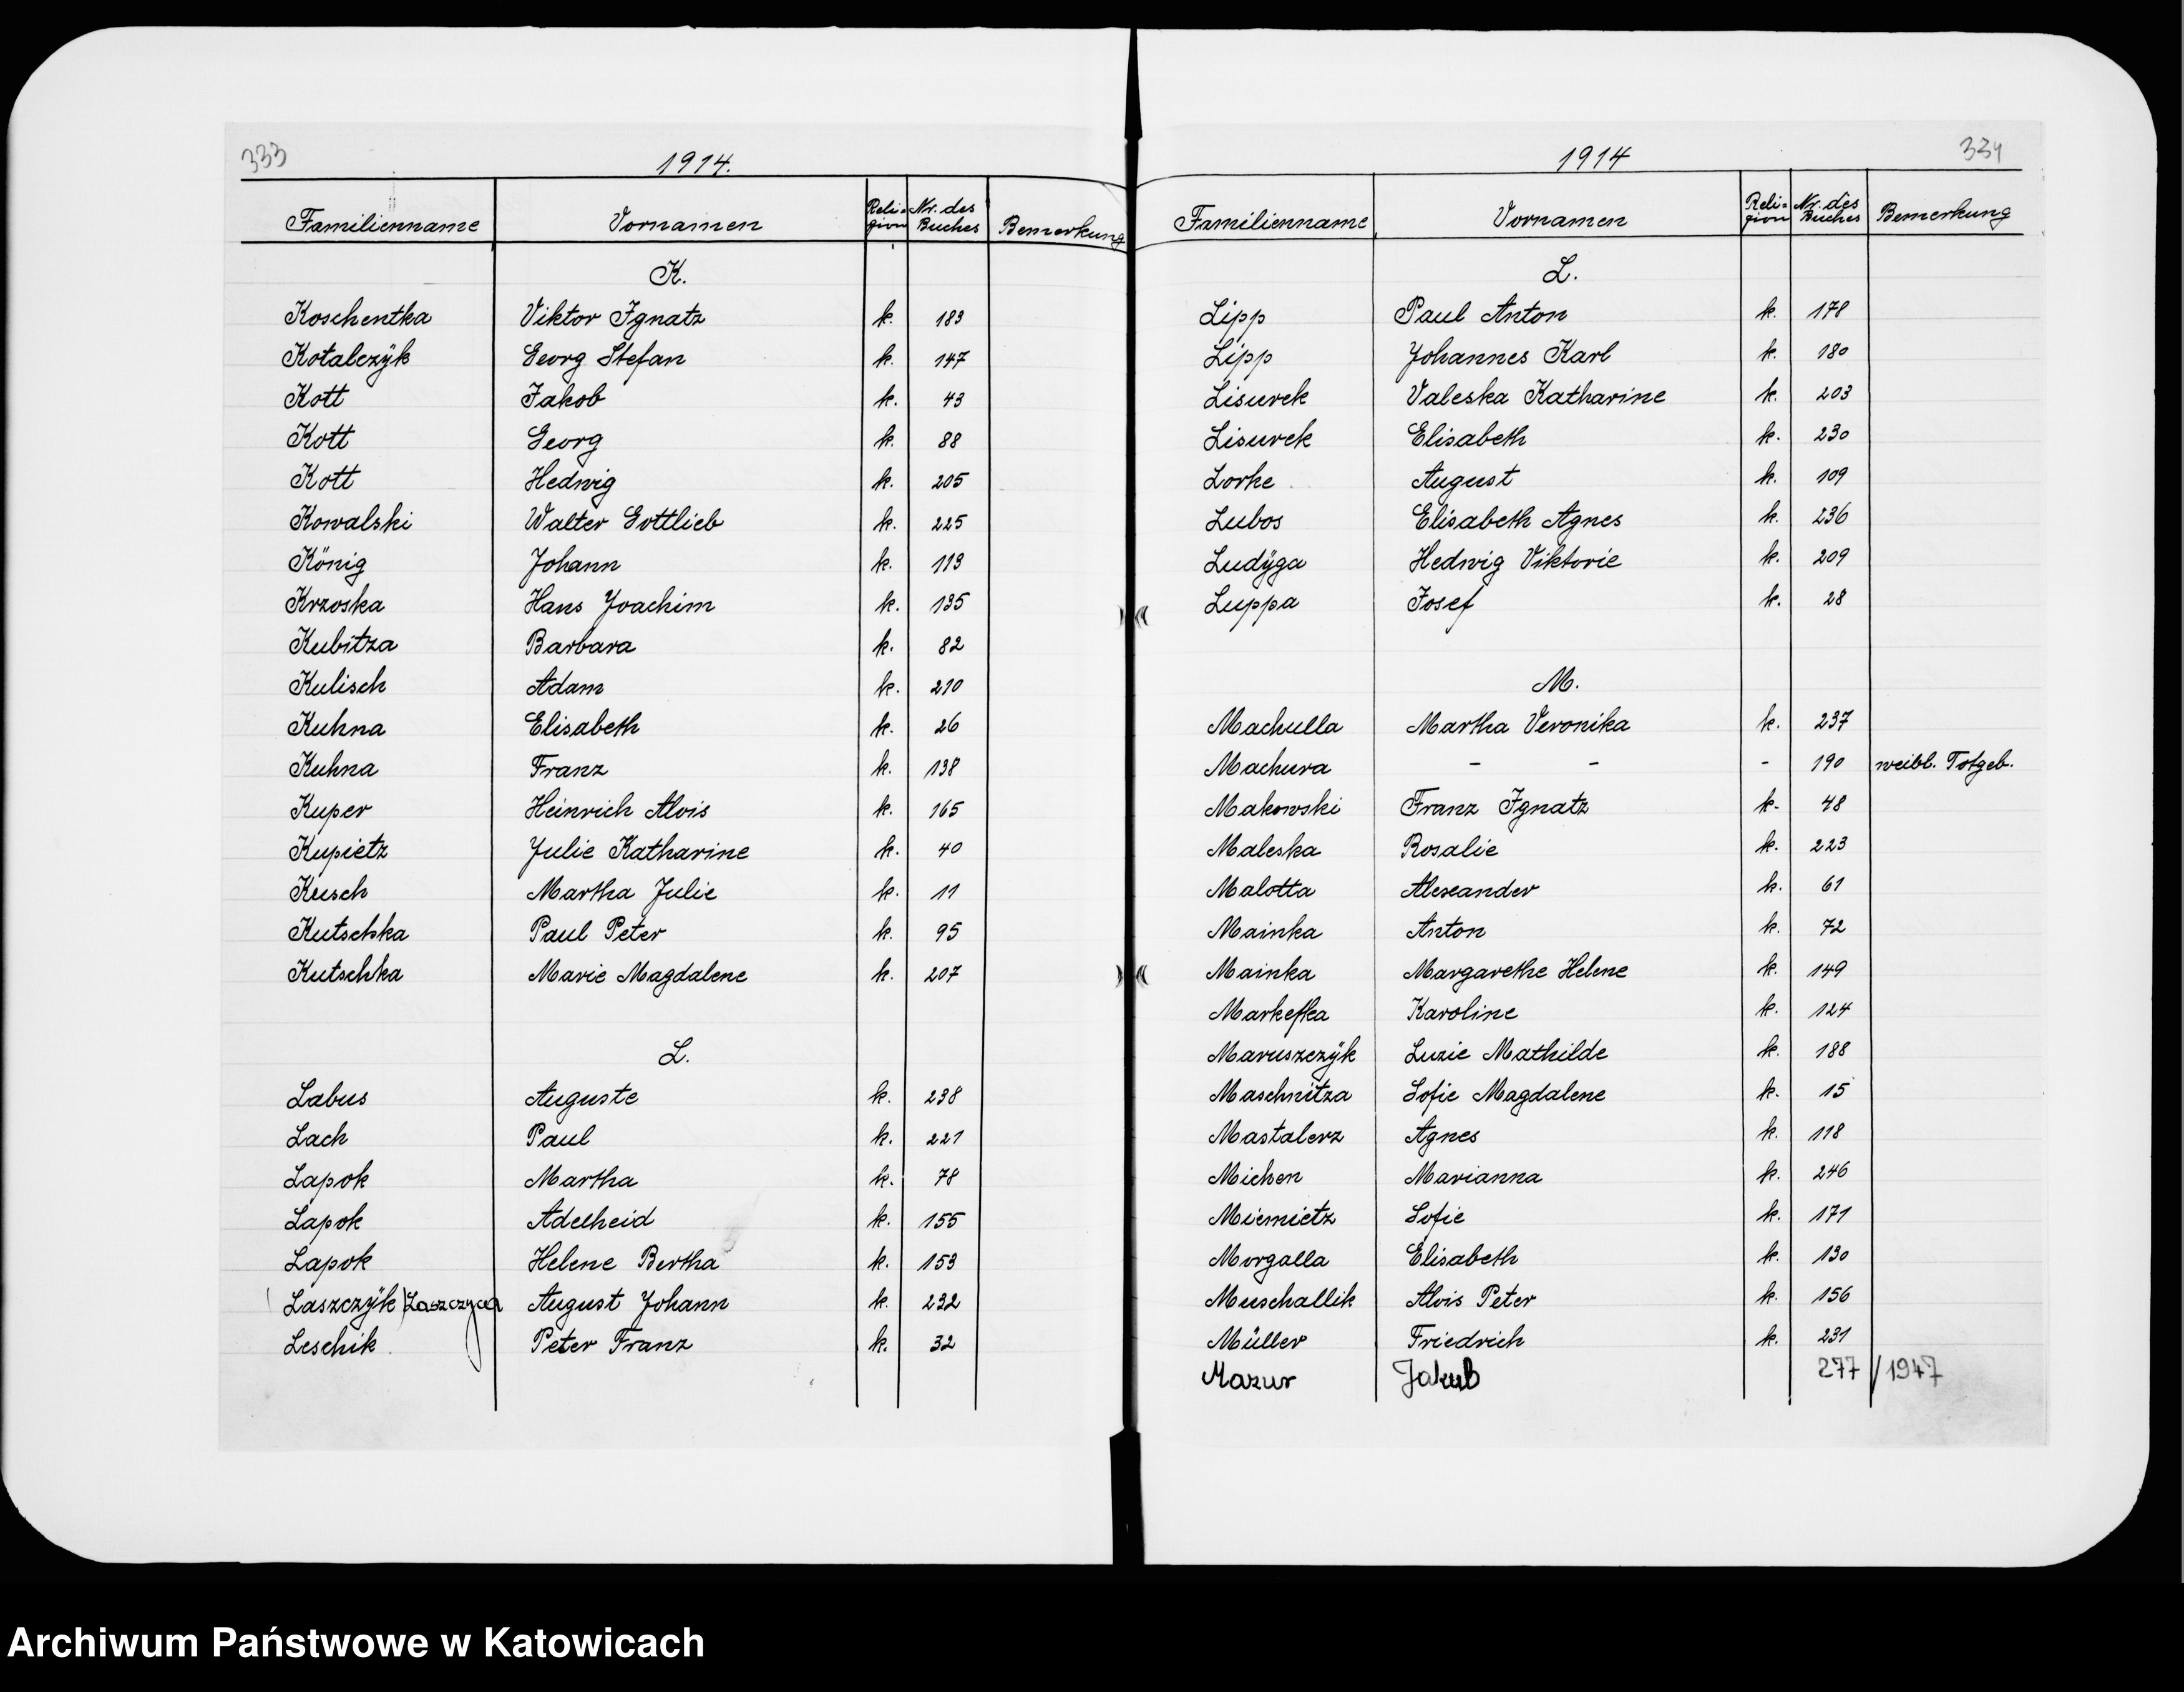 333
1914.
Familienname Vornamen Reli=gion Nr. des Buches Bemerkung
K.
Koschentka Viktor Ignatz k. 183
Kotalczÿk Georg Stefan k. 147
Kott Jakob k. 43
Kott Georg k. 88
Kott Hedwig k. 205
Kowalski Walter Gottlieb k. 225
König Johann k. 113
Krzoska Hans Joachim k. 135
Kubitza Barbara k. 82
Kulisch Adam k. 210
Kuhna Elisabeth k. 26
Kuhna Franz k. 138
Kuper Heinrich Alois k. 165
Kupietz Julie Katharine k. 40
Kusch Martha Julie k. 11
Kutschka Paul Peter k. 95
Kutschka Marie Magdalene k. 207
L.
Labus Auguste k. 238
Lach Paul k. 221
Lapok Martha k. 78
Lapok Adelheid k. 155
Lapok Helene Bertha k. 153
Laszczÿk Laszczyca August Johann k. 232
Leschik Peter Franz k. 32
1914
334
Familienname Vornamen Reli=gion Nr. des Buches Bemerkung
L.
Lipp Paul Anton k. 178
Lipp Johannes Karl k. 180
Lisurek Valeska Katharine k. 203
Lisurek Elisabeth k. 230
Lorke August k. 109
Lubos Elisabeth Agnes k. 236
Ludÿga Hedwig Viktorie k. 209
Luppa Josef k. 28
M.
Machulla Martha Veronika k. 237
Machura - - - 190 weibl. Totgeb.
Makowski Franz Ignatz k. 48
Maleska Rosalie k. 223
Malotta Alexander k. 61
Mainka Anton k. 72
Mainka Margarethe Helene k. 149
Markefka Karoline k. 124
Maruszczÿk Luzie Mathilde k. 188
Maschnitza Sofie Magdalene k. 15
Mastalerz Agnes k. 118
Michen Marianna k. 246
Miemietz Sofie k. 171
Morgalla Elisabeth k. 130
Muschallik Alois Peter k. 156
Müller Friedrich k. 231
Mazur Jakub 277/1947
Archiwum Państwowe w Katowicach